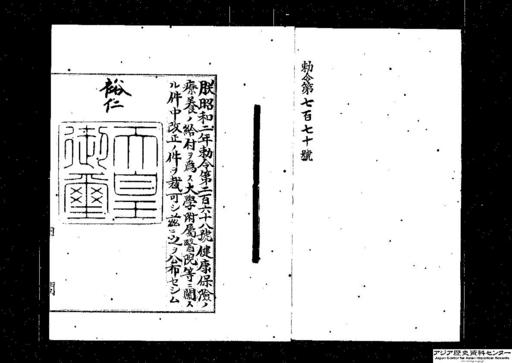 勅令第七百七十號
朕昭和二年勅令第二百六十八號健康保險ノ
療養ノ給付ヲ爲ス大學附属醫院等ニ關ス
ル件中改正ノ件ヲ裁可シ茲ニ之ヲ公布セシム
裕仁
天皇
御璽
アジア歴史資料センター
Japan Center for Asian Historical Records